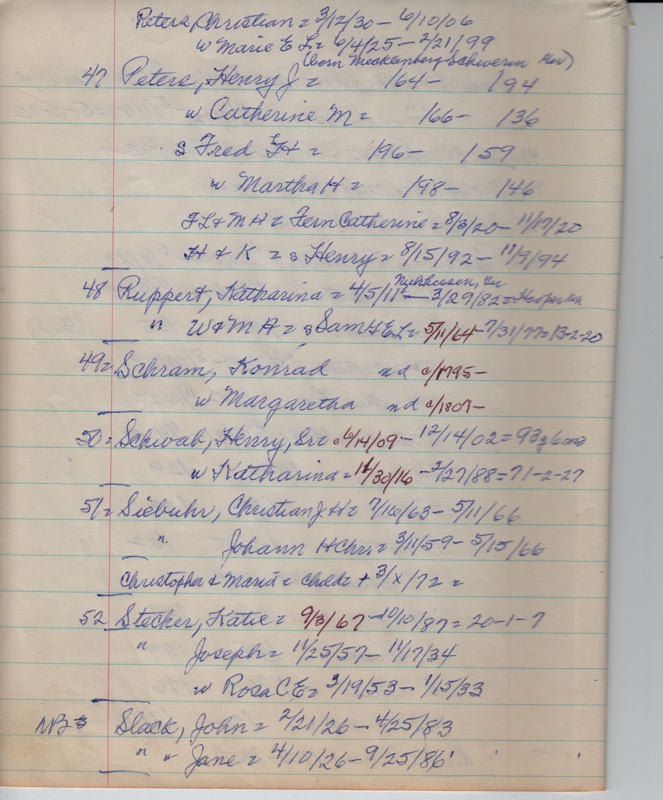 Peters, Christian = 3/12/30 - 6/10/06
w Marie E L = 6/4/25 - 2/21/99
(born Mecklenburg Schwerin
47 Peters, Henry J = 164 - 194
w Catherine M = 166 - 136
s Fred H = 196 - 159
w Martha H = 198 - 146
F L & M H = Fern Catherine = 8/3/20 - 11/17/20
H & K = s Henry = 8/15/92 - 11/9/94
48 Ruppert, Katharina = 4/5/11 - 3/29/82 =
" W & M A = s Sam = 5/11/64 - 7/31/77 = 13-2-20
49 = Schram, Konrad nd c/1795 -
w Margaretha nd c/1807 -
50 = Schwab, Henry, Sr = 6/14/09 - 12/14/02 = 93 & 6 mo
w Katharina = 11/30/16 - 2/27/88 = 71-2-27
51 = Siebuhr, Christian J H = 7/16/63 - 5/11/66
" Johann H Chr. = 3/11/59 - 5/15/66
Christopher & Maria = child = + 3/x/72 =
52 Stecher, Katie = 9/3/67 - 10/10/87 = 20-1-7
" Joseph = 11/25/57 - 11/17/34
w Rosa C E = 3/19/53 - 1/15/33
NB Slack, John = 2/21/26 - 4/25/83
" " Jane = 4/10/26 - 9/25/86